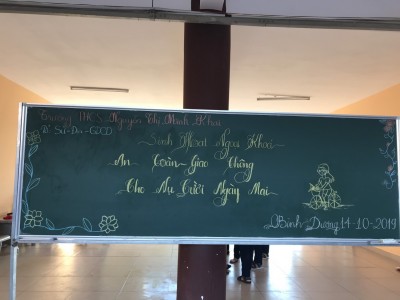 Trường THCS Nguyễn Thị Minh Khai
Tổ Sử-Địa-GDCD
Sinh Hoạt Ngoại Khóa
An Toàn Giao Thông
Cho Nụ Cười Ngày Mai
Bình Dương, 14-10-2019